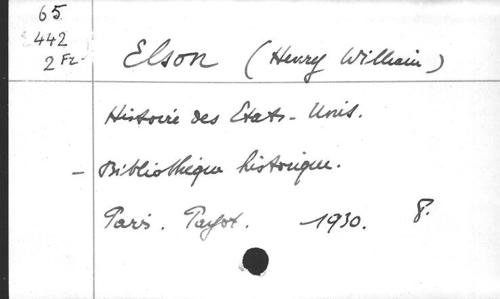 65
442
2 Fr.
Elson (Henry William)
Histoire des Etats-Unis.
- Bibliothèque historique.
Paris. Payot. 1930. 8.